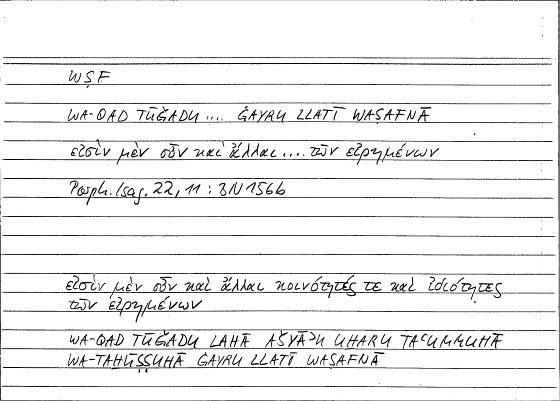 WṢF
WA-QAD TŪǦADU ... ĠAYRU LLATĪ WAṢAFNĀ
εἰσὶν μὲν οὖν καὶ ἄλλαι .... τῶν εἰρημένων
Porph. Isag. 22, 11 : BN 1566
εἰσὶν μὲν οὖν καὶ ἄλλαι κοινότητές τε καὶ ἰδιότητες
τῶν εἰρημένων
WA-QAD TŪǦADU LAHĀ AŠYĀʾU UḪARU TAʿUMMUHĀ
WA-TAḪUṢṢUHĀ ĠAYRU LLATĪ WAṢAFNĀ